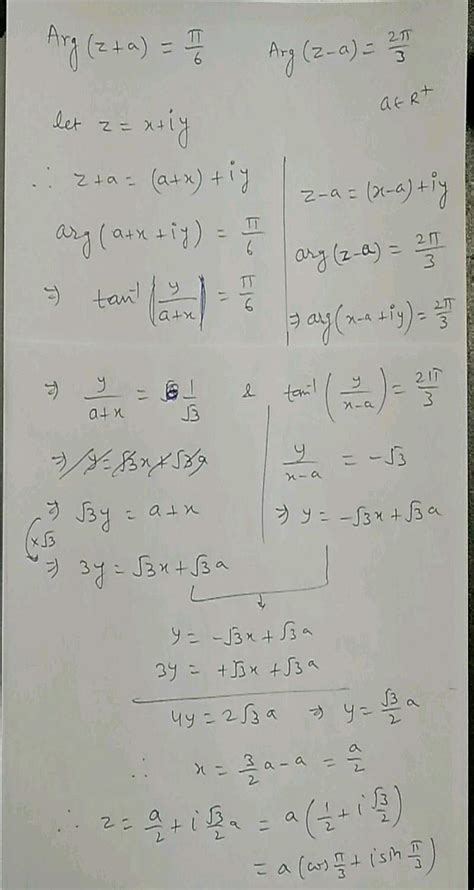 Arg (z+a) = π/6    Arg (z-a) = 2π/3
a∈R⁺
let z = x+iy
∴ z+a = (a+x) + iy    z-a = (x-a)+iy
arg (a+x+iy) = π/6    arg (z-a) = 2π/3
⇒ tan⁻¹ |y/(a+x)| = π/6    ⇒ arg(x-a+iy) = 2π/3
⇒ y/(a+x) = 1/√3    &    tan⁻¹ (y/(x-a)) = 2π/3
⇒ y = √3x + √3a    y/(x-a) = -√3
⇒ √3y = a+x    ⇒ y = -√3x + √3a
×√3
⇒ 3y = √3x + √3a
y = -√3x + √3a
3y = +√3x + √3a
4y = 2√3a ⇒ y = √3/2 a
∴ x = 3/2 a - a = a/2
∴ z = a/2 + i √3/2 a = a (1/2 + i √3/2)
= a (cos π/3 + i sin π/3)